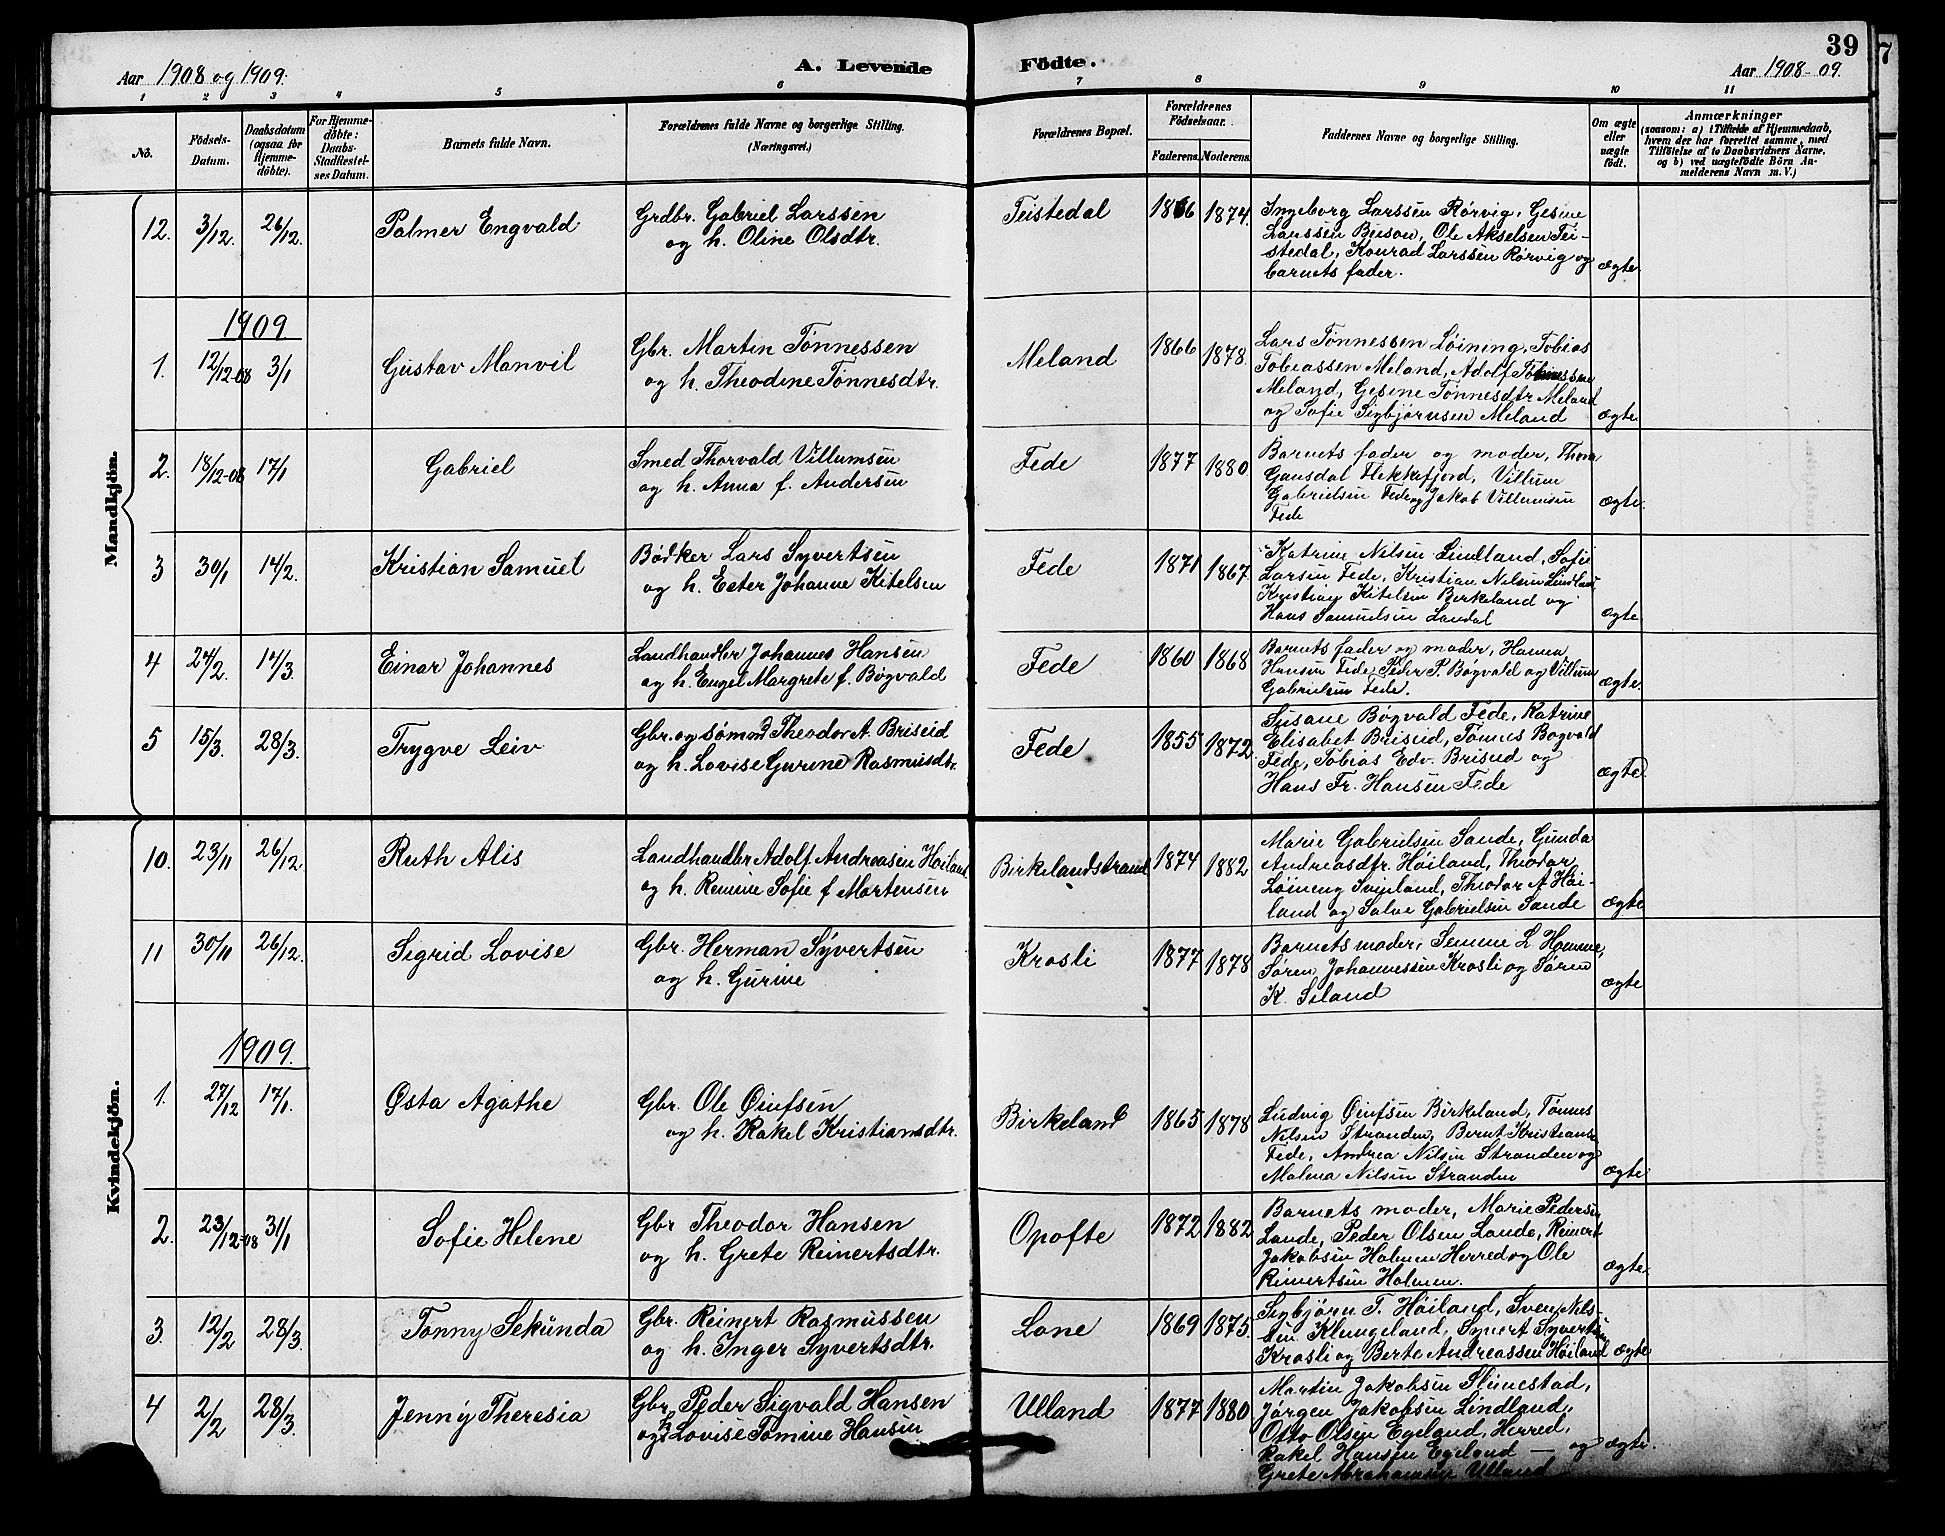 Aar 1908 og 1909.
A. Levende
Födte.
39
Aar 1908-09.
7
1 2 3 4 5 6 7 8 9 10 11
No.
Födsels-
Datum.
Daabsdatum
(ogsaa for
Hjemme-
döbte).
For Hjemme-
döbte:
Daabs-
Stadfæstel-
ses Datum.
Barnets fulde Navn.
Forældrenes fulde Navne og borgerlige Stilling.
(Næringsvei.)
Forældrenes Bopæl.
Forældrenes
Födselsaar.
Faderens.
Moderens.
Faddernes Navne og borgerlige Stilling.
Om ægte
eller
uægte
födt.
Anmærkninger
(saasom: a) i Tilfælde af Hjemmedaab,
hvem der har forrettet samme, med
Tilföielse af to Daabsvidners Navne,
og b) ved uægtefödte Börn An-
melderens Navn m. V.)
Mandkjön.
12. 3/12. 26/12. Palmer Engvald
Grdbr. Gabriel Larssen
og h. Oline Olsdtr.
Teistedal 1866 1874.
Ingeborg Larssen Rørvig, Gesine
Larssen Buson, Ole Akselsen Tei-
stedal, Konrad Larssen Rørvig og
barnets fader.
ægte
1909
1. 12/12-08 3/1 Gustav Manvil
Gbr. Martin Tønnessen
og h. Theodine Tønnesdtr.
Meland 1866 1878.
Lars Tønnessen Løining, Tobias
Tobiassen Meland, Adolf Tønnessen
Meland, Gesine Tønnesdtr Meland
og Sofie Sigbjørnsen Meland
ægte
2. 18/12-08 17/1 Gabriel
Smed Thorvald Villumsen
og h. Anna f. Andersen
Fede 1877 1880
Barnets fader og moder, Thora
Gausdal Flekkefjord, Villum
Gabrielsen Fede og Jakob Villumsen
Fede
ægte.
3 30/1 14/2. Kristian Samuel
Bødker Lars Syvertsen
og h. Ester Johanne Kitelsen
Fede 1871 1867
Katrine Nilsen Lindland, Sofie
Larsen Fede, Kristian Nilsen Lindland
Kristian Kitelsen Birkeland og
Hans Samuelsen Landal
ægte
4 24/2. 14/3. Einar Johannes
Landhandler Johannes Hansen
og h. Engel Margrete f. Bøgvald
Fede 1860 1868
Barnets fader og moder, Hanna
Hansen Fede, Peder P. Bøgvald og Villum
Gabrielsen Fede.
ægte.
5 15/3. 28/3. Trygve Leiv
Gbr. og sømnd Theodor A. Briseid
og h. Lovise Gurine Rasmusdtr.
Fede 1855 1872
Susane Bøgvald Fede, Katrine
Elisabet Briseid, Tønnes Bøgvald
Fede, Tobias Edv. Briseid og
Hans Fr. Hansen Fede
ægte
Kvindekjön.
10. 23/11 26/12. Ruth Alis
Landhandler Adolf Andreasen Høiland
og h. Remine Sofie f Martensen
Birkelandstrand 1874 1882
Marie Gabrielsen Sande, Gunda
Andreasdtr. Høiland, Theodor
Løining Svindland, Theodor A Høi-
land og Salve Gabrielsen Sande
ægte
11 30/11 26/12. Sigrid Lovise
Gbr. Herman Syvertsen
og h. Gurine
Krosli 1877 1878
Barnets moder, Semine L Homme,
Søren Johannessen Krosli og Søren
K. Seland
ægte
1909.
1. 27/12 17/1. Østa Agathe
Gbr. Ole Øiufsen
og h. Rakel Kristiansdtr.
Birkeland 1865 1878
Ludvig Øiufsen Birkeland, Tønnes
Nilsen Stranden, Bernt Kristiansen
Fede, Andrea Nilsen Stranden og
Malena Nilsen Stranden
ægte
2. 23/12-08 31/1 Sofie Helene
Gbr Theodor Hansen
og h. Grete Reinertsdtr.
Opofte 1872 1882
Barnets moder, Marie Pedersen
Lande, Peder Olsen Lande, Reinert
Jakobsen Holmen Herred og Ole
Reinertsen Holmen.
ægte.
3. 12/2 28/3. Tonny Sekunda
Gbr. Reinert Rasmussen
og h. Inger Syvertsdtr.
Lone 1869 1875.
Sigbjørn T. Høiland, Sven Nils-
sen Klungeland, Syvert Syvertsen
Krosli og Berte Andreassen Høiland
ægte
4 2/2 28/3. Jenny Theresia
Gbr. Peder Sigvald Hansen
og h Lovise Tomine Hansen
Ulland 1877 1880
Martin Jakobsen Slimestad,
Jørgen Jakobsen Lindland,
Otto Olsen Egeland, Herred,
Rakel Hansen Egeland — og
Grete Abrahamsen Ulland
ægte.